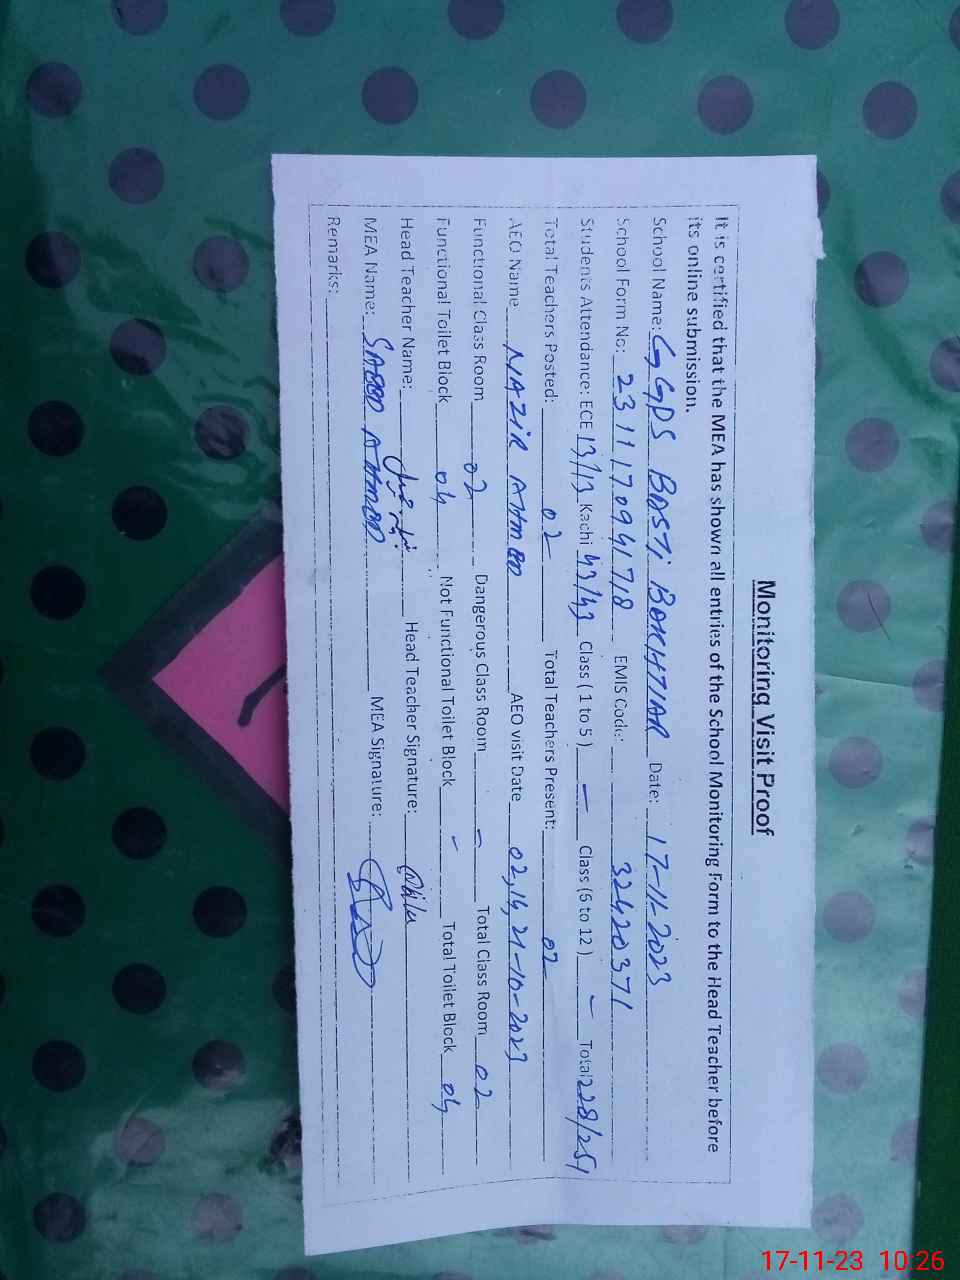 Monitoring Visit Proof
It is certified that the MEA has shown all entries of the School Monitoring Form to the Head Teacher before
its online submission.
School Name: GGPS BASTI BAKHTIAR Date: 17-11-2023
School Form No: 2311170941718 EMIS Code: 32420371
Students Attendance: ECE 13/13 Kachi 43/43 Class (1 to 5) — Class (6 to 12) — Total 228/251
Total Teachers Posted: 02 Total Teachers Present: 02
AEO Name NAZIR AHMED AEO visit Date 02,14,21-10-2023
Functional Class Room 02 Dangerous Class Room - Total Class Room 02
Functional Toilet Block 04 Not Functional Toilet Block - Total Toilet Block 04
Head Teacher Name: Head Teacher Signature:
MEA Name: SAEED AHMED MEA Signature:
Remarks:
17-11-23 10:26